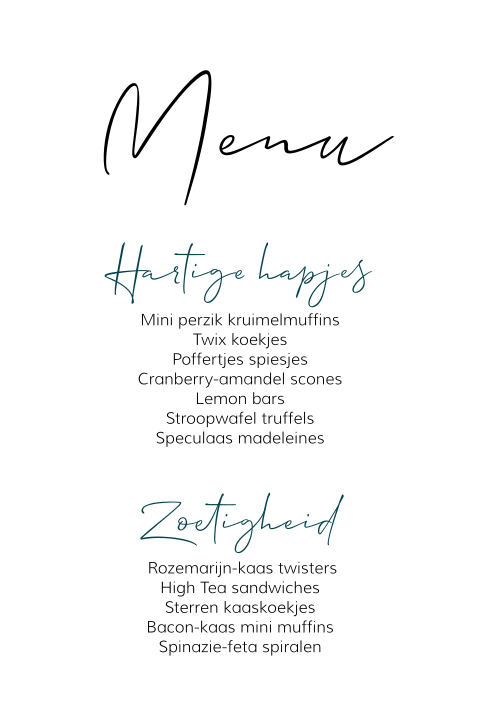 Menu
Hartige hapjes
Mini perzik kruimelmuffins
Twix koekjes
Poffertjes spiesjes
Cranberry-amandel scones
Lemon bars
Stroopwafel truffels
Speculaas madeleines
Zoetigheid
Rozemarijn-kaas twisters
High Tea sandwiches
Sterren kaaskoekjes
Bacon-kaas mini muffins
Spinazie-feta spiralen